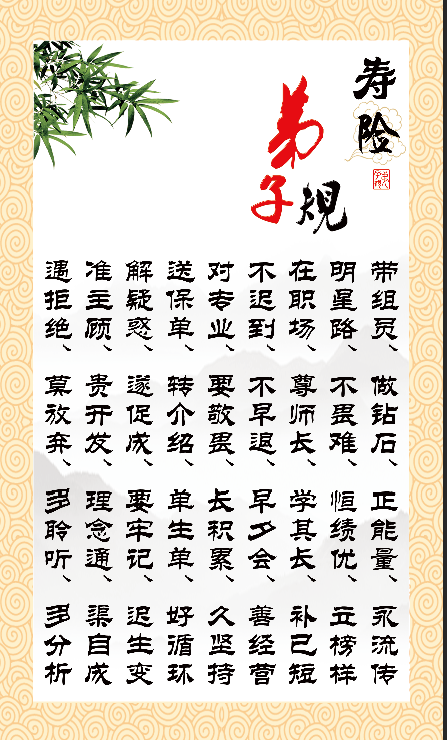 寿险
弟子规
带组员、做钻石、正能量、永流传
明星路、不畏难、恒绩优、立榜样
在职场、尊师长、学其长、补己短
不迟到、不早退、早夕会、善经营
对专业、要敬畏、长积累、久坚持
送保单、转介绍、单生单、好循环
解疑惑、遂促成、要牢记、迟生变
准主顾、贵开发、理念通、渠自成
遇拒绝、莫放弃、多聆听、多分析